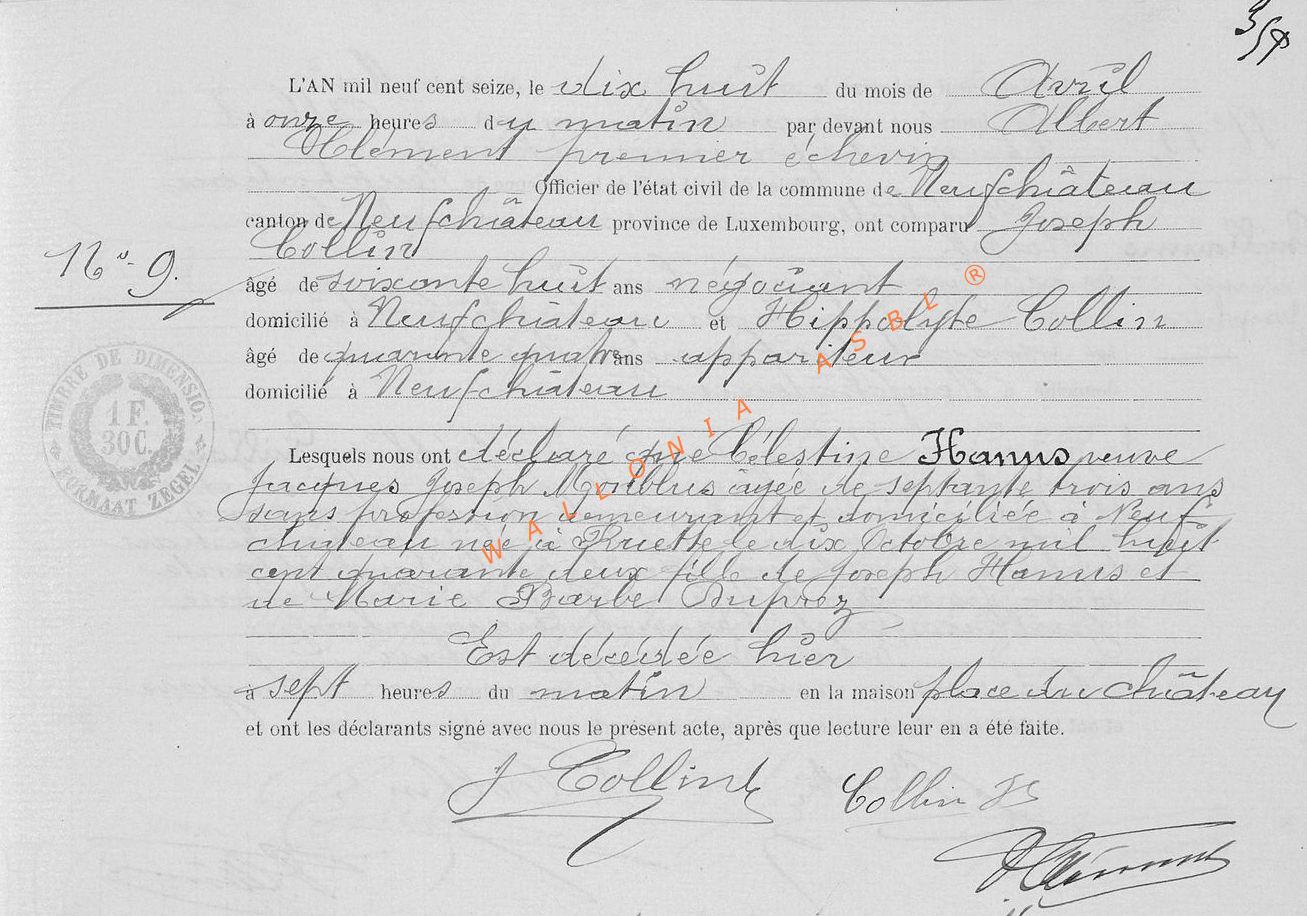 L'AN mil neuf cent seize, le dix huit du mois de Avril
à onze heures du matin par devant nous Albert
Clément premier échevin
Officier de l'état civil de la commune de Neufchâteau
canton de Neufchâteau province de Luxembourg, ont comparu Joseph
Collin
N° 9.
âgé de soixante huit ans négociant
domicilié à Neufchâteau et Hippolyte Collin
âgé de quarante quatre ans appariteur
domicilié à Neufchâteau
TIMBRE DE DIMENSIO.
1 F.
30C.
FORMAAT ZEGEL
WALLONIA ASBL ®
Lesquels nous ont déclaré que Célestine Hanus veuve
Jacques Joseph âgée de septante trois ans
sans profession demeurant et domiciliée à Neuf-
château née à le dix Octobre mil huit
cent quarante deux fille de Joseph Hanus et
de Marie Barbe Duproz
Est décédée hier
à sept heures du matin en la maison place du château
et ont les déclarants signé avec nous le présent acte, après que lecture leur en a été faite.
J Collin
Collin H